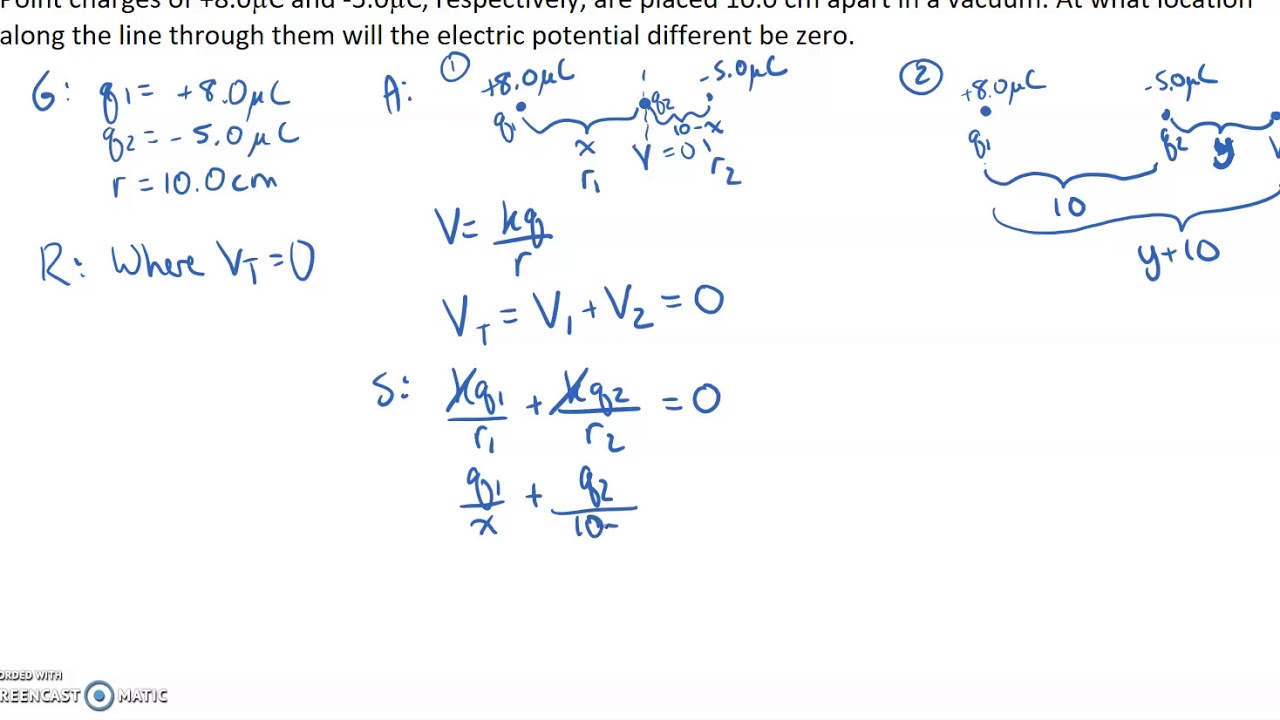 Point charges of +8.0μC and -5.0μC, respectively, are placed 10.0 cm apart in a vacuum. At what location
along the line through them will the electric potential different be zero.
G: q1 = +8.0μC
q2 = -5.0μC
r = 10.0cm
R: Where VT = 0
A: ①
+8.0μC
-5.0μC
q1
q2
x
10-x
V = 0
r1
r2
V = kq/r
VT = V1 + V2 = 0
S: kq1/r1 + kq2/r2 = 0
q1/x + q2/10-
②
+8.0μC
-5.0μC
q1
q2
y
10
y+10
ORDED WITH
REENCAST MATIC